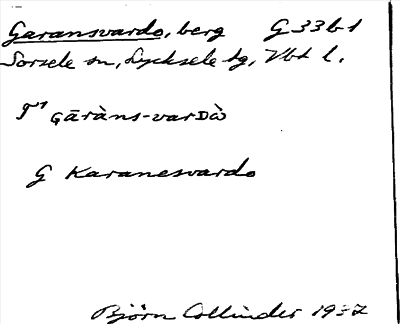 Garansvardo, berg G33b1
Sorsele sn, Lycksele tg, Vbt l.
gāràns-varDò
G Karanesvardo
Björn Collinder 1937